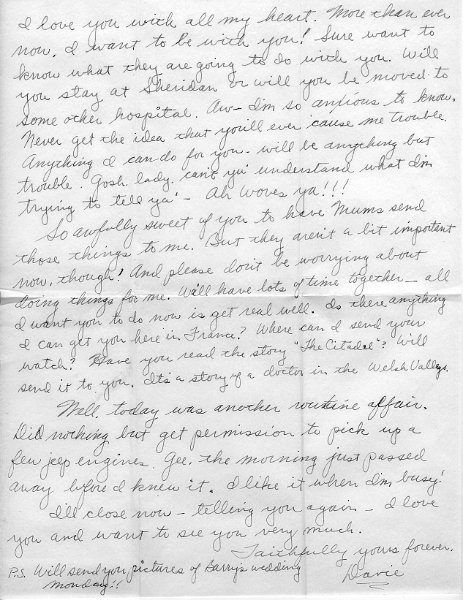 I love you with all my heart. More than ever
now, I want to be with you! Sure want to
know what they are going to do with you. Will
you stay at Sheridan or will you be moved to
some other hospital. Aw- I'm so anxious to know.
Never get the idea that you'll ever 'cause me trouble.
Anything I can do for you- will be anything but
trouble. Gosh, lady, can't ya' understand what I'm
trying to tell ya'- Ah Woves ya!!!
So awfully sweet of you to have Mums send
those things to me. But they aren't a bit important
now, though! And please don't be worrying about
doing things for me. We'll have lots of time together- all
I want you to do now is get real well. Is there anything
I can get you here in France? Where can I send your
watch? Have you read the story "The Citadel"? Will
send it to you. It's a story of a doctor in the Welsh Valleys.
Well, today was another routine affair.
Did nothing but get permission to pick up a
few jeep engines. Gee, the morning just passed
away before I knew it. I like it when I'm busy!
I'll close now - telling you again - I love
you and want to see you very much.
Faithfully yours forever,
Davie
P.S. Will send you pictures of Barry's wedding
Monday!!